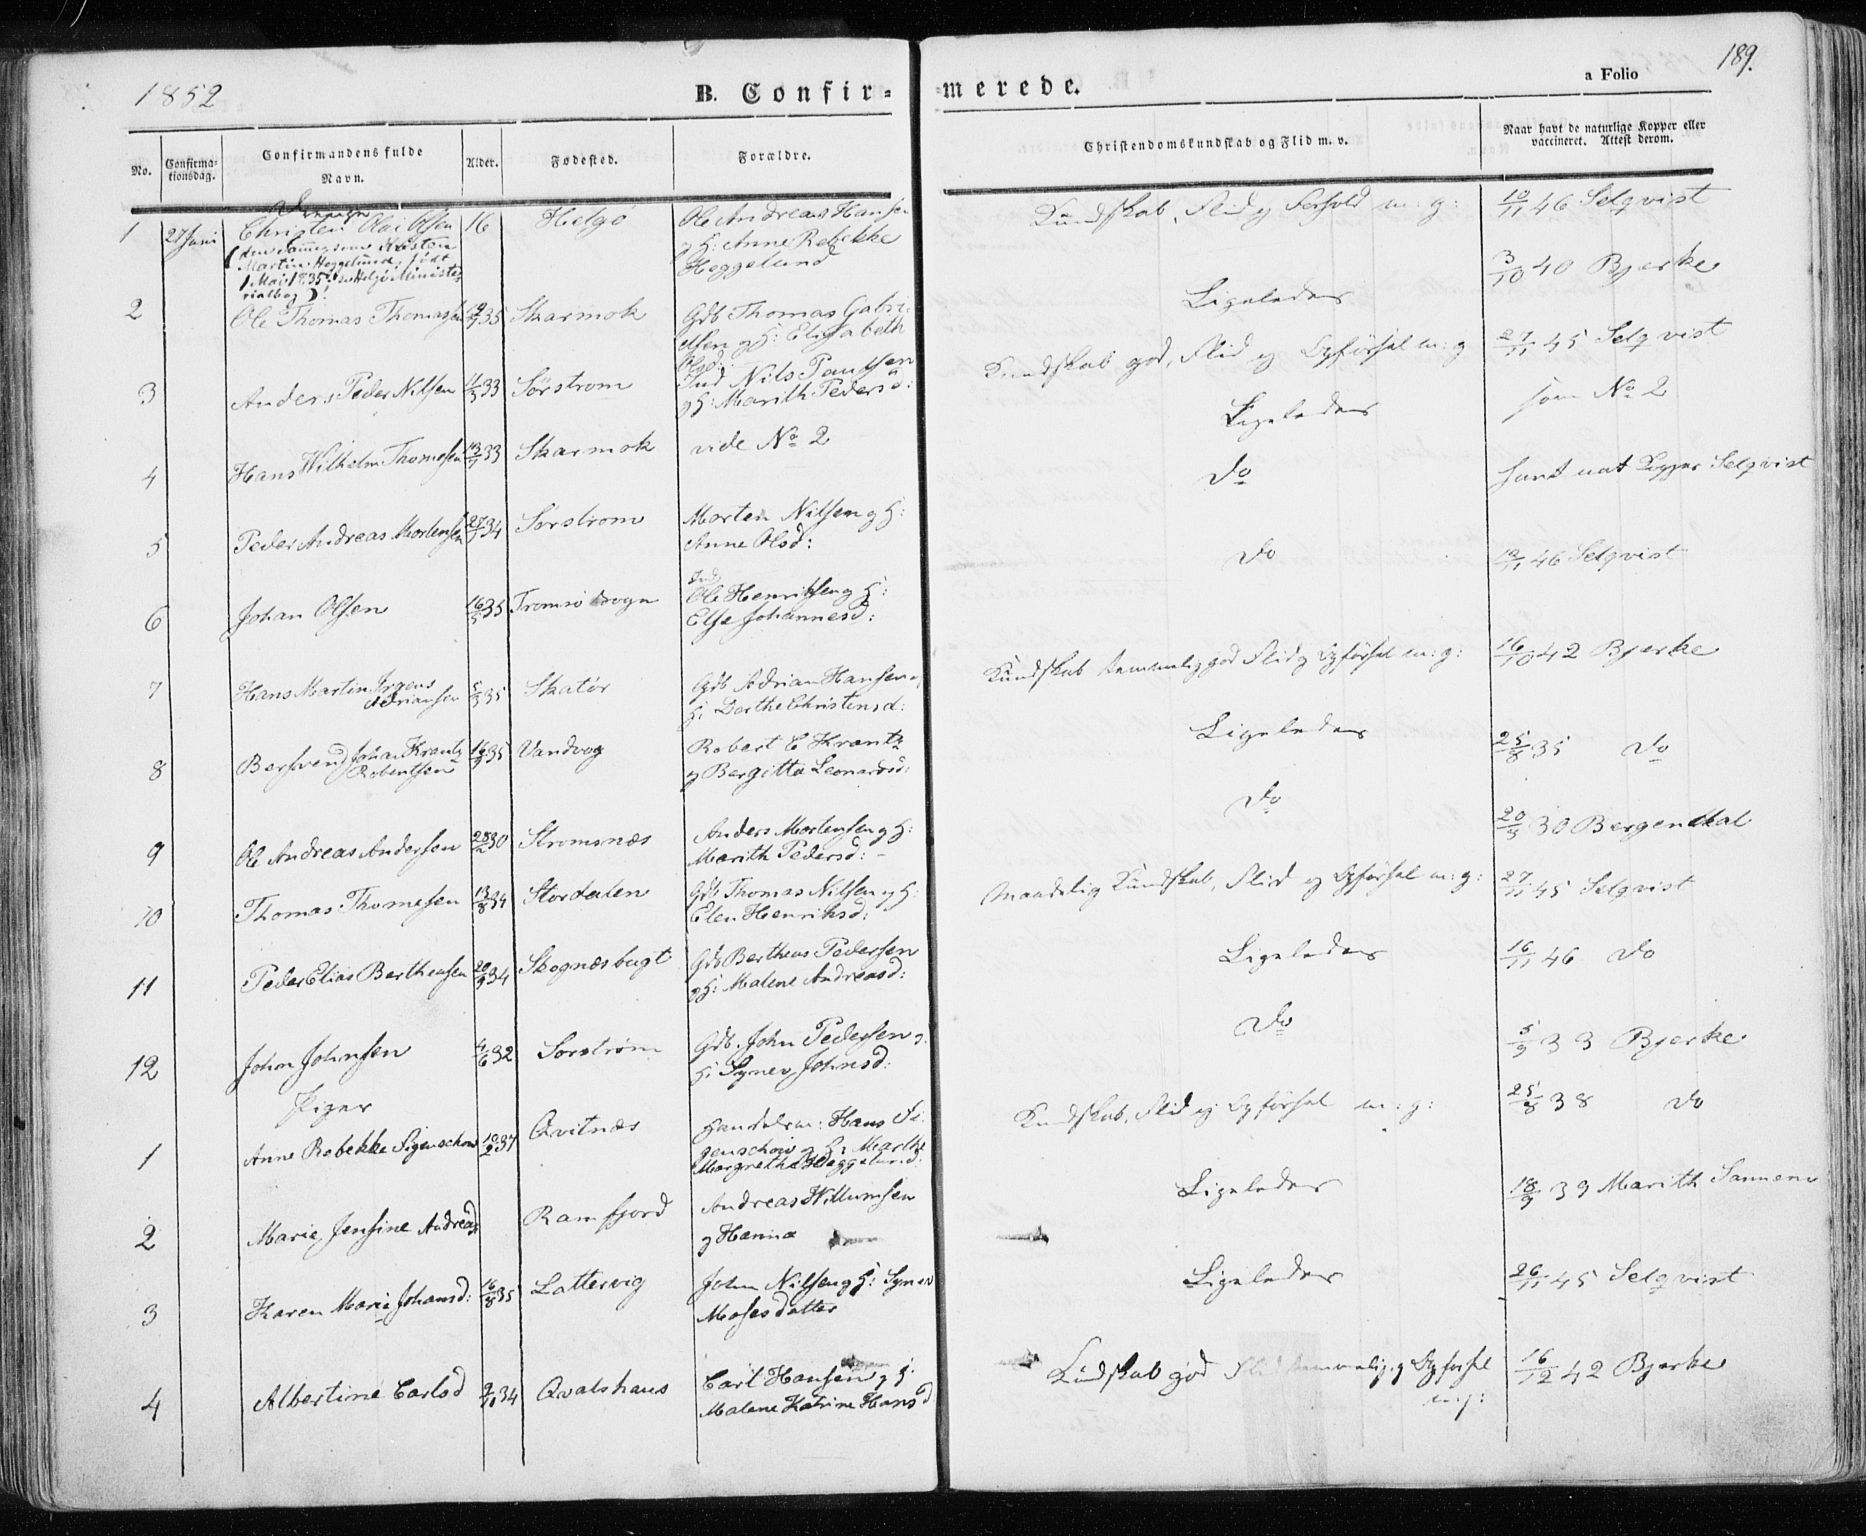 1852
B. Confir-
-merede.
a Folio
189.
No.
Confirma-
tionsdag.
Confirmandens fulde
Navn.
Alder.
Fødested.
Forældre.
Christendomskundskab og Flid m. v.
Naar havt de naturlige Kopper eller
vaccineret. Attest derom.
1 Christen Olai Olsen 16 Helgø Ole Andreas Hansen
(den samme som Kristen
Martin Heggelund, født
1 Mai 1835
rialbog).
og H: Anne Rebekke
Heggelund
Kundskab, Flid og Forhold m: g:
10/11 46 Selqvist
2 Ole Thomas Thomassen 35 Skarmok Gdb Thomas Gabri-
elsen og H: Elisabeth
Olsd:
Ligeledes
3/10 40 Bjerke
3 Anders Peder Nilsen 33 Sørstrøm Ind Nils Paulsen
og H: Marith Pedersd:
Kundskab god, Flid og Opførsel m: g
27/11 45 Selqvist
4 Hans Wilhelm Thomesen 33 Skarmok vide No 2
Ligeledes
som No 2
5 Peder Andreas Mortensen 34 Sørstrøm Morten Nilsen og H:
Anne Olsd:
Do
havt nat Kopper Selqvist
6 Johan Olsen 16/5 35 Tromsø Sogn Ind
Ole Henriksen og H:
Else Johannesd:
Do
10/11 46 Selqvist
7 Hans Martin Irgens
Adriansen 5/3 35 Skatør Gdb Adrian Hansen og
H: Dorthe Christensd:
Kundskab temmelig god Flid og Opførsel m: g:
16/10 42 Bjerke
8 Bersvend Johan Krantz
Robertsen 35 Vandvog Robert C Krantz
og Bergitta Leonardsd:
Ligeledes
25/8 35 Do
9 Ole Andreas Andersen 28/2 30 Stromsnæs Anders Mortensen og H:
Marith Pedersd: -
Do
30 Bergendhal
10 Thomas Thomesen 13/8 34 Stordalen Gdb Thomas Nilsen og H:
Elen Henriksd:
Maadelig Kundskab, Flid og Opførsel m: g:
27/11 45 Selqvist
11 Peder Elias Bertheusen 20/9 34 Skognæsbugt Gdb Bertheus Pedersen
og H: Malene Andreasd:
Ligeledes
16/11 46 Do
12 John Johnsen 4/6 32 Sorstrøm Gdb. John Pedersen og
H: Synev Johnsd:
Do
5/9 33 Bjerke
Piger
1 Anne Rebekke Figenschow 37 Qvitnæs Handelsm: Hans Fi-
genschow og H: Marthe
Margrethe Heggelund:
Kundskab, Flid og Opførsel m: g:
25/8 38 Do
2 Marie Jensine Andreasd Ramfjord Andreas Willumsen
og Hanna
Ligeledes
18/9 39 Marith Sannem
3 Karen Marie Johansd: 16/8 35 Lattervig John Nilsen og H: Synev
Mosesdatter
Ligeledes
26/11 45 Selqvist
4 Albertine Carlsd 34 Qvalshaus Carl Hansen og H:
Malene Katrine Hansd
Kundskab god Flid temmelig, og Opførsel
m: g:
16/12 42 Bjerke